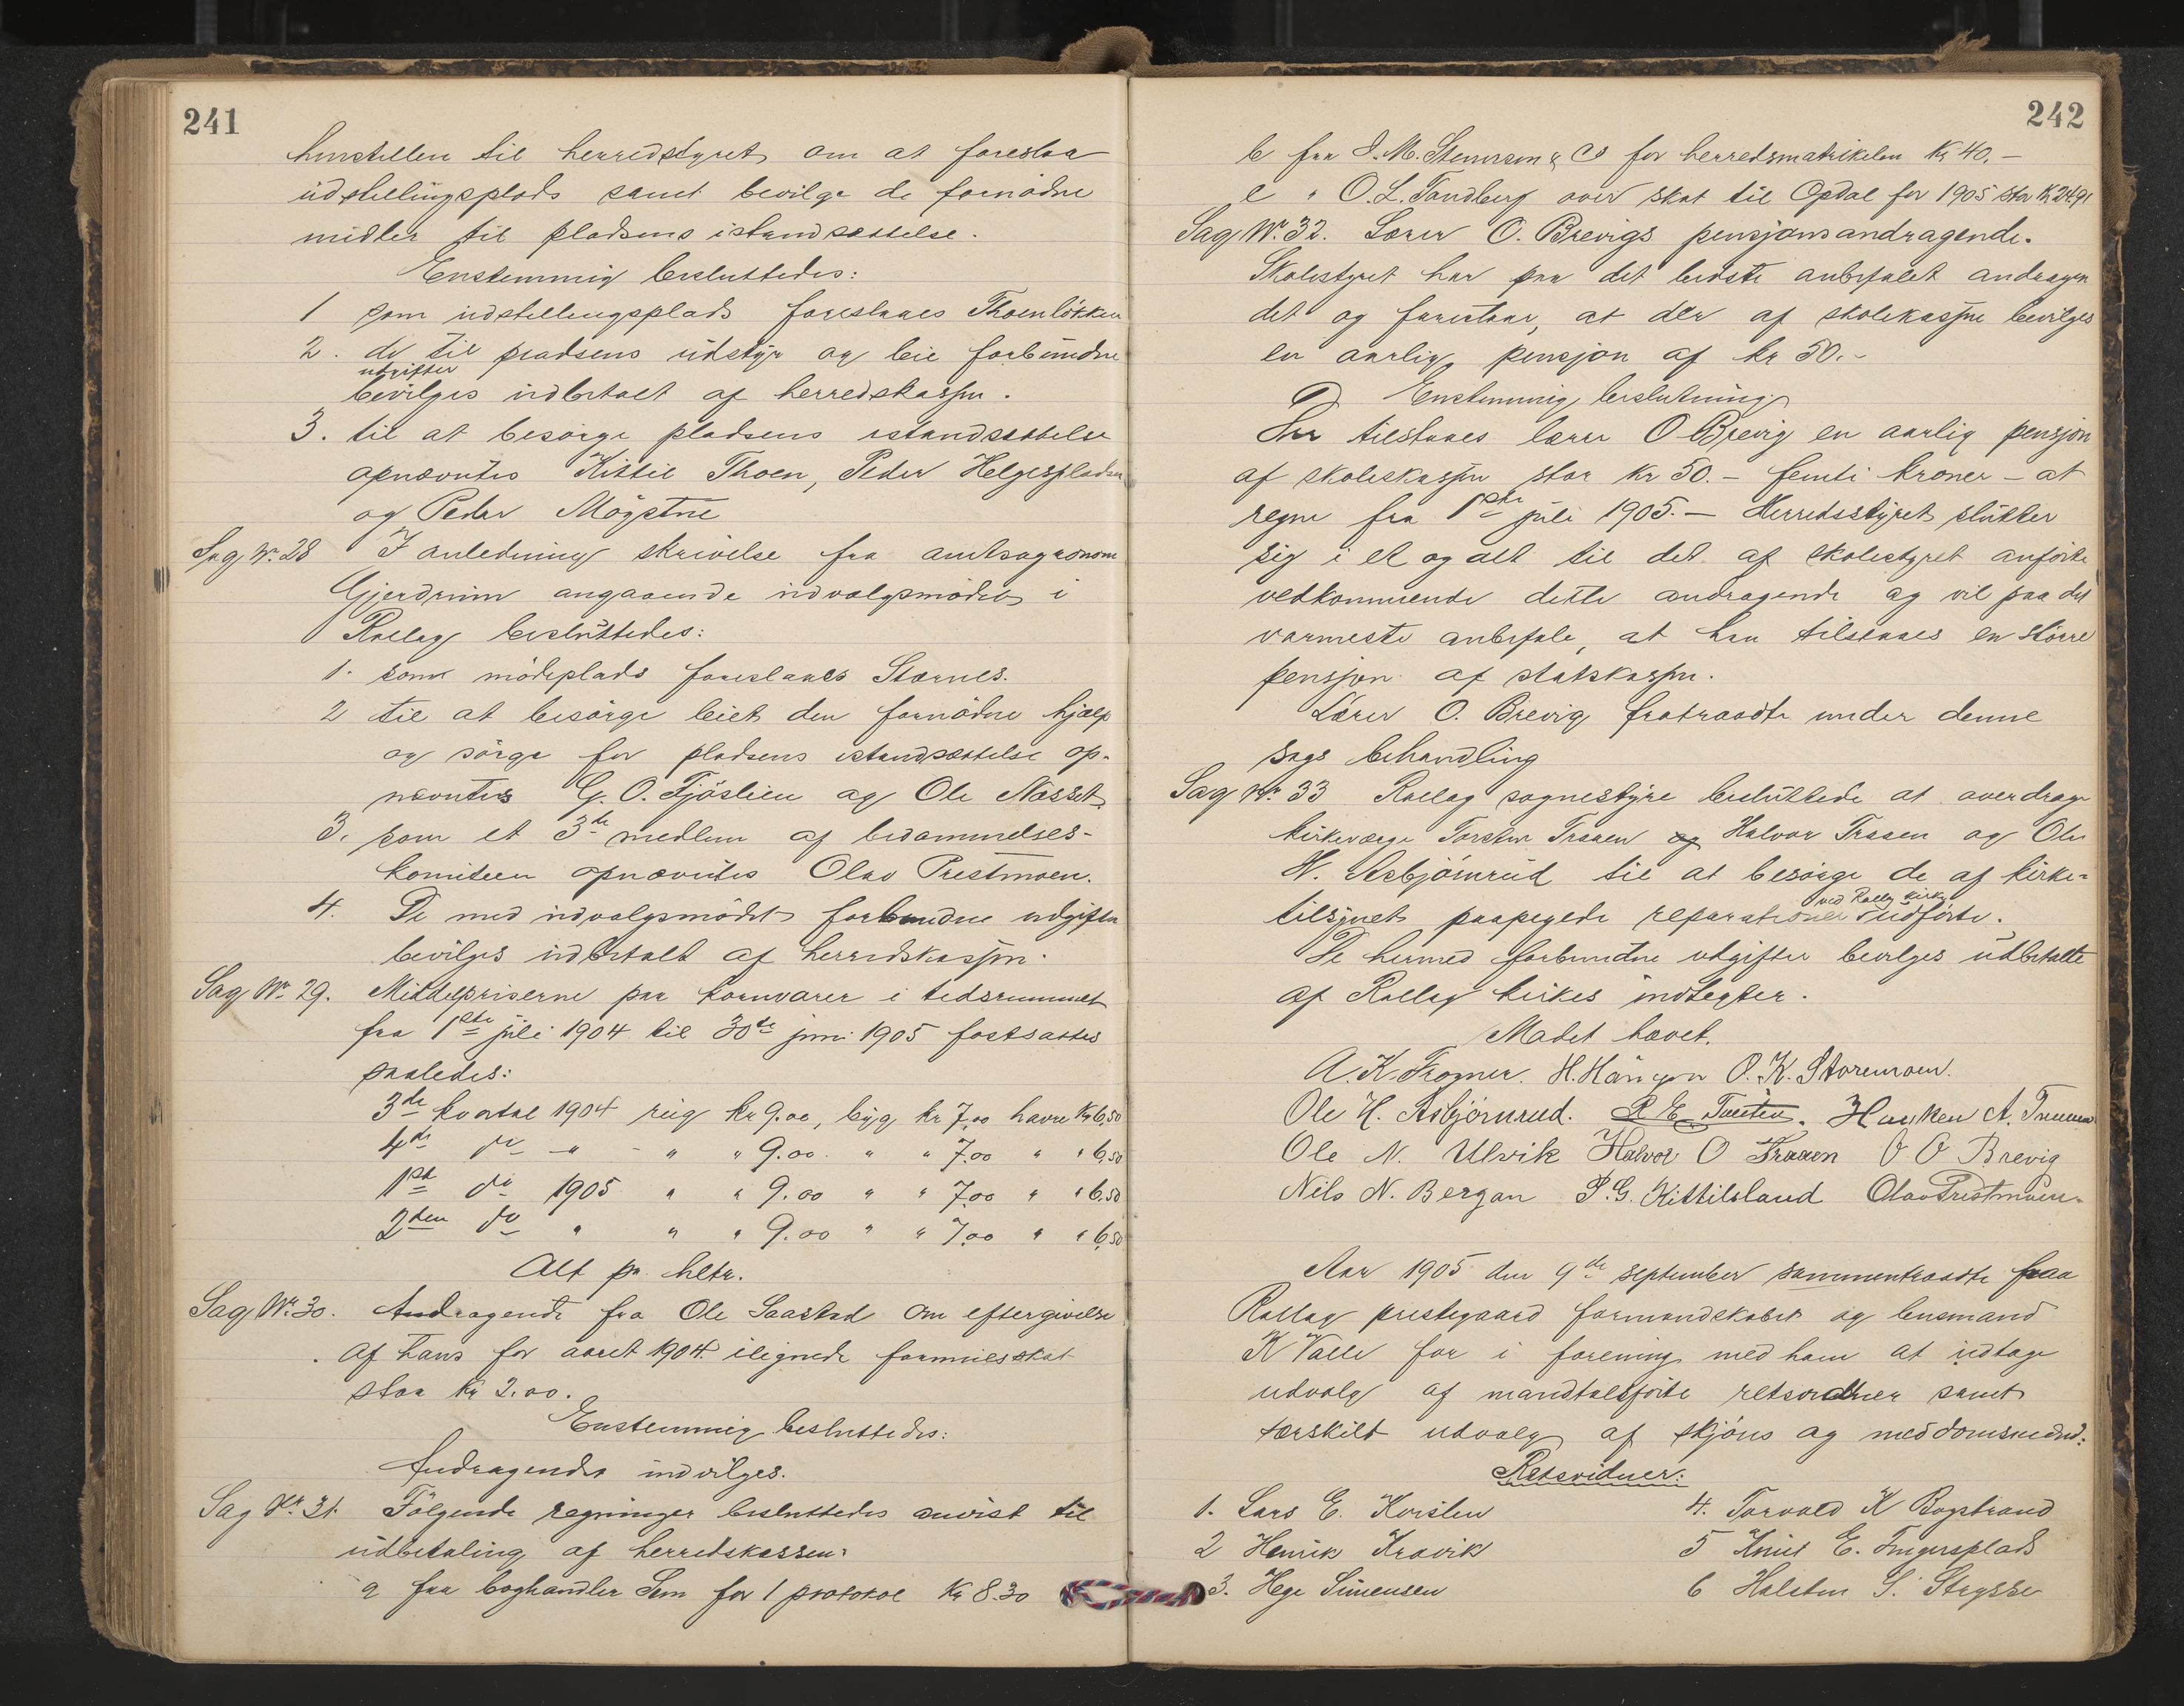 241
henstillen til herredstyret om at foreslaa
udstillingsplads samt bevilge de fornødne
midler til pladsens istandsættelse.
Enstemmig besluttedes:
1 som udstillingsplads foreslaaes Thoenløkken
2. de til pladsens udstyr og leie forbundne
utgifter
bevilges udbetalt af herredskassen.
3. til at besørge pladsens istandsættelse
opnævntes Kittil Thoen, Peder Helgesplads
og Peder Møgstue
Sag No. 28 I anledning skrivelse fra amtsagronom
Gjerdrum angaaende udvalgsmødet i
Rollag besluttedes:
1. som mødeplads foreslaaes Stærnes.
2 til at besørge leiet den fornødne hjælp
og sørge for pladsens istandsættelse op-
nævntes G. O. Fjøslien og Ole Næsset
3. som et 3de medlem af bedømmelses-
komiteen opnævntes Olav Prestmoen.
4. De med udvalgsmødet forbundne udgifter
bevilges udbetalt af herredskassen.
Sag No. 29. Middelpriserne paa kornvarer i tidsrummet
fra 1ste juli 1904 til 30te juni 1905 fastsattes
saaledes:
3de kvartal 1904 rug kr 9.00, byg kr 7.00 havre kr 6.50
4de do " " " 9.00 " " 7.00 " " 6.50
1ste do 1905 " " 9.00 " " 7.00 " " 6.50
2den do " " " 9.00 " " 7.00 " " 6.50
Alt pr. hltr.
Sag No. 30. Andragende fra Ole Saastad om eftergivelse
af hans for aaret 1904 ilignede formuesskat
stor kr 2.00.
Enstemmig besluttedes:
Andragendet indvilges.
Sag No. 31. Følgende regninger besluttedes anvist til
udbetaling af herredskassen:
a fra boghandler Sem for 1 protokol kr 8.30
242
b fra J. M. Stenersen & Co for herredsmatrikelen kr 40.-
c " O. L. Tandberg over skat til Opdal for 1905 stor kr 24.91
Sag No. 32. Lærer O. Brevigs pensjonsandragende.
Skolestyret har paa det bedste anbefalet andragen
det og foreslaar, at der af skolekassen bevilges
en aarlig pensjon af kr 50.-
Enstemmig beslutning
Der tilstaaes lærer O Brevig en aarlig pensjon
af skolekassen stor kr 50.- femti kroner - at
regne fra 1ste juli 1905. - Herredsstyret slutter
sig i et og alt til det af skolestyret anførte
vedkommende dette andragende og vil paa det
varmeste anbefale, at han tilstaaes en større
pensjon af statskassen.
Lærer O. Brevig fratraadte under denne
sags behandling
Sag No. 33 Rollag sognestyre besluttede at overdrage
kirkeværge Torsten Traaen og Halvor Traaen og Ole
H. Asbjørnrud til at besørge de af kirke-
ved Rollag kirke
tilsynet paapegede reparationer udførte.
De hermed forbundne utgifter bevilges udbetalte
af Rollag kirkes indtegter.
Mødet hævet.
A. K. Frogner. H. Hangen O. K. Storemoen.
Ole H. Asbjørnrud. Haaken A. Traaen
Ole N. Ulvik Halvor O Traaen O O Brevig
Nils N. Bergan P. G. Kittilsland Olav Prestmoen.
Aar 1905 den 9de september sammentraadte paa
Rollag prestegaard formandskabet og lensmand
K Valle for i forening med ham at udtage
udvalg af mandtalsførte retsvidner samt
særskilt udvalg af skjøns og meddomsmænd:
Retsvidner:
1. Lars E. Kvislen
2 Henrik Kravik
3. Hege Simensen
4. Torvald K Bogstrand
5 Knut E. Fingersplads
6 Halsten S.